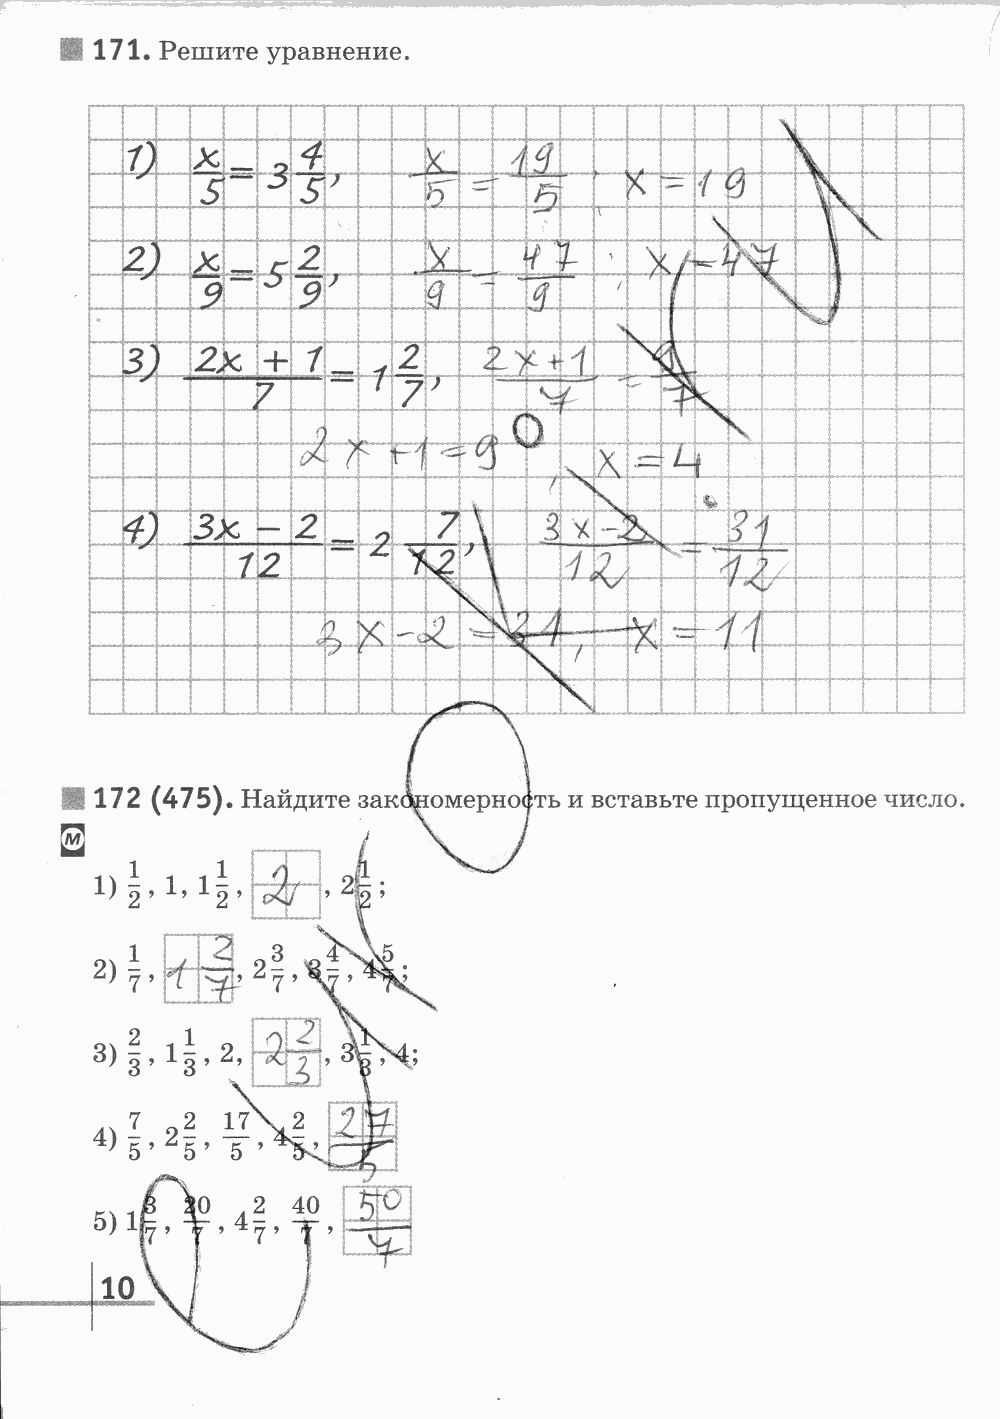 171. Решите уравнение.
1) x/5 = 3 4/5, x/5 = 19/5; x = 19
2) x/9 = 5 2/9, x/9 = 47/9; x = 47
3) (2x + 1)/7 = 1 2/7, (2x+1)/7 = 9/7
2x+1=9, x=4
4) (3x − 2)/12 = 2 7/12, (3x−2)/12 = 31/12
3x−2=31, x=11
172 (475). Найдите закономерность и вставьте пропущенное число.
М
1) 1/2, 1, 1 1/2, 2, 2 1/2;
2) 1/7, 1 2/7, 2 3/7, 3 4/7, 4 5/7;
3) 2/3, 1 1/3, 2, 2 2/3, 3 1/3, 4;
4) 7/5, 2 2/5, 17/5, 4 2/5, 27/5
5) 1 3/7, 20/7, 4 2/7, 40/7, 50/7
10